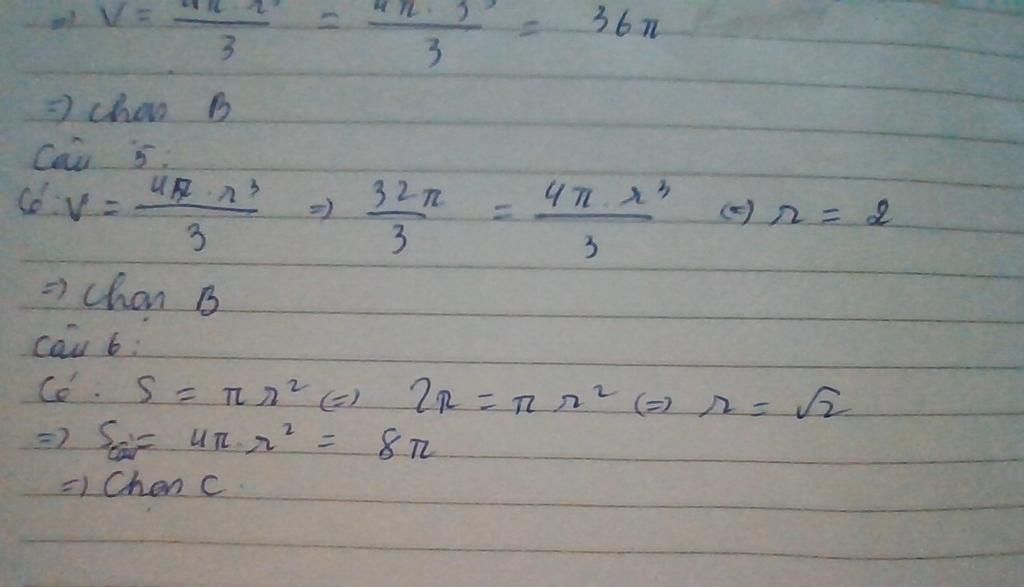 => V = 4π . r³ / 3 = 4π . 3³ / 3 = 36π
=> Chọn B
Câu 5:
Có: V = 4π . r³ / 3 => 32π / 3 = 4π . r³ / 3 <=> r = 2
=> Chọn B
Câu 6:
Có: S = π r² <=> 2π = π r² <=> r = √2
=> Scầu = 4π . r² = 8π
=> Chọn C